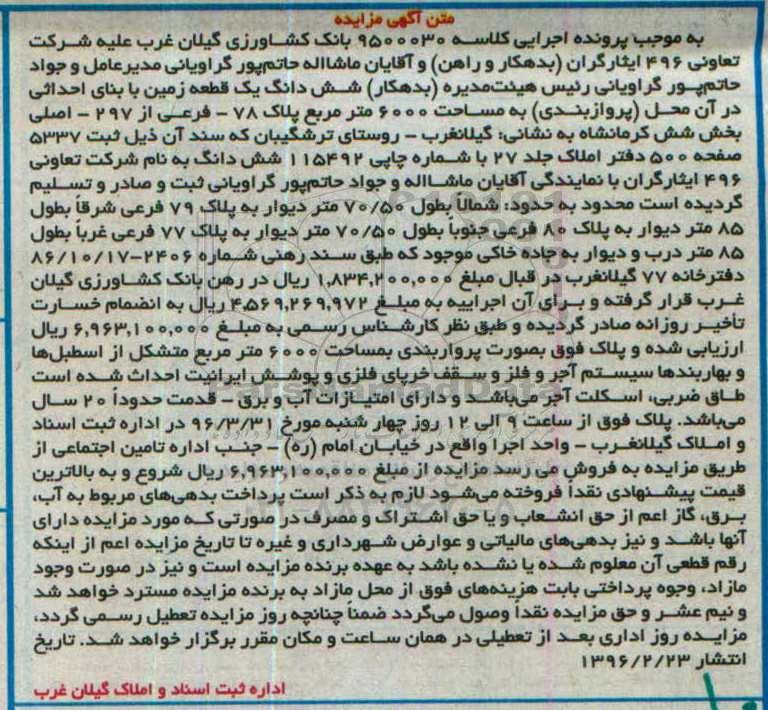 متن آگهی مزایده
به موجب پرونده اجرایی کلاسه ۹۵۰۰۰۳۰ بانک کشاورزی گیلان غرب علیه شرکت
تعاونی ۴۹۶ ایثارگران (بدهکار و راهن) و آقایان ماشااله حاتم‌پور گراویانی مدیرعامل و جواد
حاتم‌پور گراویانی رئیس هیئت‌مدیره (بدهکار) شش دانگ یک قطعه زمین با بنای احداثی
در آن محل (پرواربندی) به مساحت ۶۰۰۰ متر مربع پلاک ۷۸ - فرعی از ۲۹۷ - اصلی
بخش شش کرمانشاه به نشانی: گیلانغرب - روستای ترشگیبان که سند آن ذیل ثبت ۵۳۳۷
صفحه ۵۰۰ دفتر املاک جلد ۲۷ با شماره چاپی ۱۱۵۴۹۲ شش دانگ به نام شرکت تعاونی
۴۹۶ ایثارگران با نمایندگی آقایان ماشااله و جواد حاتم‌پور گراویانی ثبت و صادر و تسلیم
گردیده است محدود به حدود: شمالاً بطول ۷۰/۵۰ متر دیوار به پلاک ۷۹ فرعی شرقاً بطول
۸۵ متر دیوار به پلاک ۸۰ فرعی جنوباً بطول ۷۰/۵۰ متر دیوار به پلاک ۷۷ فرعی غرباً بطول
۸۵ متر درب و دیوار به جاده خاکی موجود که طبق سند رهنی شماره ۲۴۰۶-۸۶/۱۰/۱۷
دفترخانه ۷۷ گیلانغرب در قبال مبلغ ۱,۸۳۴,۲۰۰,۰۰۰ ریال در رهن بانک کشاورزی گیلان
غرب قرار گرفته و برای آن اجراییه به مبلغ ۴,۵۶۹,۲۶۹,۹۷۲ ریال به انضمام خسارت
تأخیر روزانه صادر گردیده و طبق نظر کارشناس رسمی به مبلغ ۶,۹۶۳,۱۰۰,۰۰۰ ریال
ارزیابی شده و پلاک فوق بصورت پرواربندی بمساحت ۶۰۰۰ متر مربع متشکل از اسطبل‌ها
و بهاربندها سیستم آجر و فلز و سقف خرپای فلزی و پوشش ایرانیت احداث شده است
طاق ضربی، اسکلت آجر می‌باشند و دارای امتیازات آب و برق - قدمت حدوداً ۲۰ سال
می‌باشد. پلاک فوق از ساعت ۹ الی ۱۲ روز چهار شنبه مورخ ۹۶/۳/۳۱ در اداره ثبت اسناد
و املاک گیلانغرب - واحد اجرا واقع در خیابان امام (ره) - جنب اداره تامین اجتماعی از
طریق مزایده به فروش می رسد مزایده از مبلغ ۶,۹۶۳,۱۰۰,۰۰۰ ریال شروع و به بالاترین
قیمت پیشنهادی نقداً فروخته می‌شود لازم به ذکر است پرداخت بدهی‌های مربوط به آب،
برق، گاز اعم از حق انشعاب و یا حق اشتراک و مصرف در صورتی که مورد مزایده دارای
آنها باشد و نیز بدهی‌های مالیاتی و عوارض شهرداری و غیره تا تاریخ مزایده اعم از اینکه
رقم قطعی آن معلوم شده یا نشده باشد به عهده برنده مزایده است و نیز در صورت وجود
مازاد، وجوه پرداختی بابت هزینه‌های فوق از محل مازاد به برنده مزایده مسترد خواهد شد
و نیم عشر و حق مزایده نقداً وصول می‌گردد ضمناً چنانچه روز مزایده تعطیل رسمی گردد،
مزایده روز اداری بعد از تعطیلی در همان ساعت و مکان مقرر برگزار خواهد شد. تاریخ
انتشار ۱۳۹۶/۲/۲۳
اداره ثبت اسناد و املاک گیلان غرب